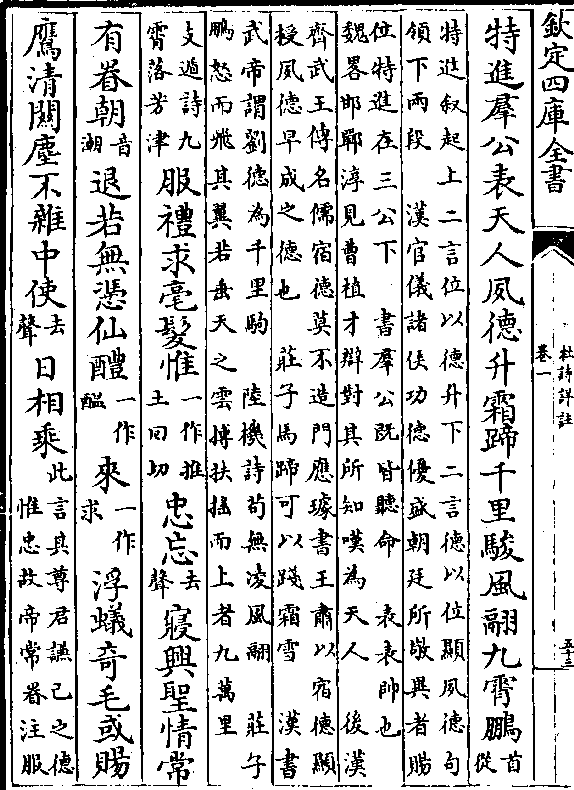 欽定四庫全書
杜詩詳註
卷一
五十三
特進羣公表天人夙德升霜蹄千里駿風翮九霄鵬首
從
特進叙起上二言位以德升下二言德以位顯夙德句
領下兩段　漢官儀諸侯功德優盛朝廷所敬異者賜
位特進在三公下　書羣公既皆聽命　表表帥也
魏畧邯鄲淳見曹植才辯對其所知嘆為天人　後漢
齊武王傳名儒宿德莫不造門應璩書王肅以宿德顯
授夙德早成之德也　莊子馬蹄可以踐霜雪　漢書
武帝謂劉德為千里駒　陸機詩茍無凌風翮　莊子
鵬怒而飛其翼若垂天之雲摶扶搖而上者九萬里
支遁詩九
霄落芳津
服禮求毫髮惟
一作推
土回切
忠忘
去
聲
寢興聖情常
有眷朝
音
潮
退若無憑仙醴
一作
醖
來
一作
求
浮蟻奇毛或賜
鷹清關塵不雜中使
去
聲
日相乘
此言其尊君謙己之德
惟忠故帝常眷注服